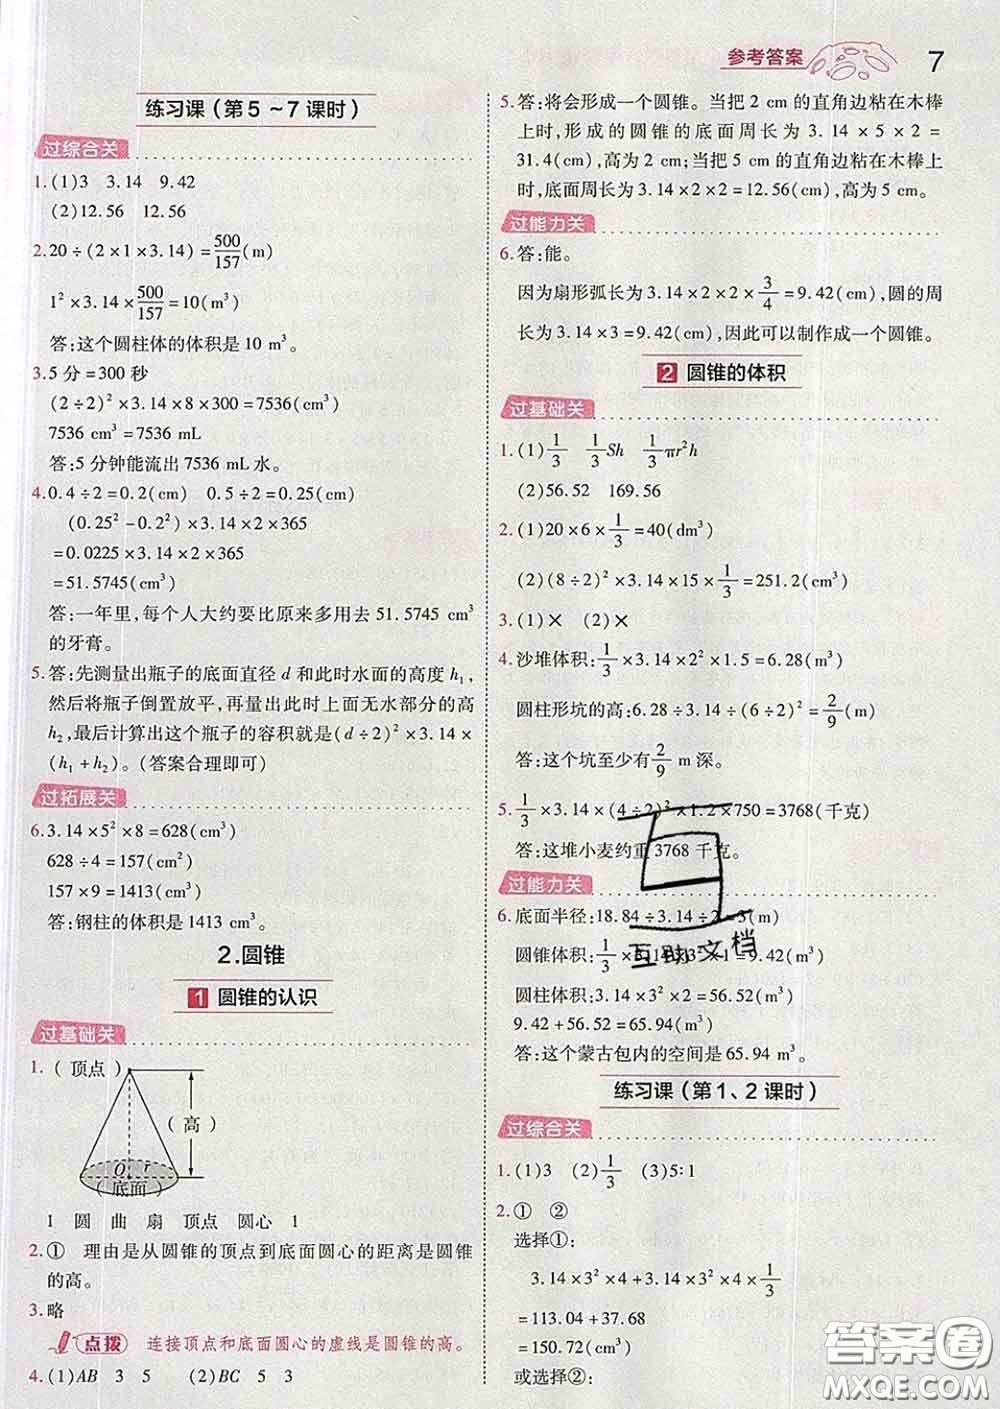 参考答案 7
练习课(第5~7课时)
过综合关
1.(1)3 3.14 9.42
(2)12.56 12.56
2.20÷(2×1×3.14)=500/157(m)
1²×3.14×500/157=10(m³)
答:这个圆柱体的体积是10 m³。
3.5分=300秒
(2÷2)²×3.14×8×300=7536(cm³)
7536 cm³=7536 mL
答:5分钟能流出7536 mL水。
4.0.4÷2=0.2(cm) 0.5÷2=0.25(cm)
(0.25²-0.2²)×3.14×2×365
=0.0225×3.14×2×365
=51.5745(cm³)
答:一年里,每个人大约要比原来多用去51.5745 cm³
的牙膏。
5.答:先测量出瓶子的底面直径d和此时水面的高度h₁,
然后将瓶子倒置放平,再量出此时上面无水部分的高
h₂,最后计算出这个瓶子的容积就是(d÷2)²×3.14×
(h₁+h₂)。(答案合理即可)
过拓展关
6.3.14×5²×8=628(cm³)
628÷4=157(cm²)
157×9=1413(cm³)
答:钢柱的体积是1413 cm³。
2.圆锥
1 圆锥的认识
过基础关
1.(顶点)
(高)
O r
(底面)
1 圆 曲 扇 顶点 圆心 1
2.① 理由是从圆锥的顶点到底面圆心的距离是圆锥
的高。
3.略
点拨 连接顶点和底面圆心的虚线是圆锥的高。
4.(1)AB 3 5 (2)BC 5 3
5.答:将会形成一个圆锥。当把2 cm的直角边粘在木棒
上时,形成的圆锥的底面周长为3.14×5×2=
31.4(cm),高为2 cm;当把5 cm的直角边粘在木棒上
时,底面周长为3.14×2×2=12.56(cm),高为5 cm。
过能力关
6.答:能。
因为扇形弧长为3.14×2×2×3/4=9.42(cm),圆的周
长为3.14×3=9.42(cm),因此可以制作成一个圆锥。
2 圆锥的体积
过基础关
1.(1)1/3 1/3Sh 1/3πr²h
(2)56.52 169.56
2.(1)20×6×1/3=40(dm³)
(2)(8÷2)²×3.14×15×1/3=251.2(cm³)
3.(1)× (2)×
4.沙堆体积:1/3×3.14×2²×1.5=6.28(m³)
圆柱形坑的高:6.28÷3.14÷(6÷2)²=2/9(m)
答:这个坑至少有2/9 m深。
5.1/3×3.14×(4÷2)²×1.2×750=3768(千克)
答:这堆小麦约重3768千克。
过能力关
6.底面半径:18.84÷3.14÷2=3(m)
圆锥体积:1/3×3.14×3²×1=9.42(m³)
圆柱体积:3.14×3²×2=56.52(m³)
9.42+56.52=65.94(m³)
答:这个蒙古包内的空间是65.94 m³。
互助文档
练习课(第1、2课时)
过综合关
1.(1)3 (2)1/3 (3)5∶1
2.① ②
选择①:
3.14×3²×4+3.14×3²×4×1/3
=113.04+37.68
=150.72(cm³)
或选择②:
答案圈
MXQE.COM